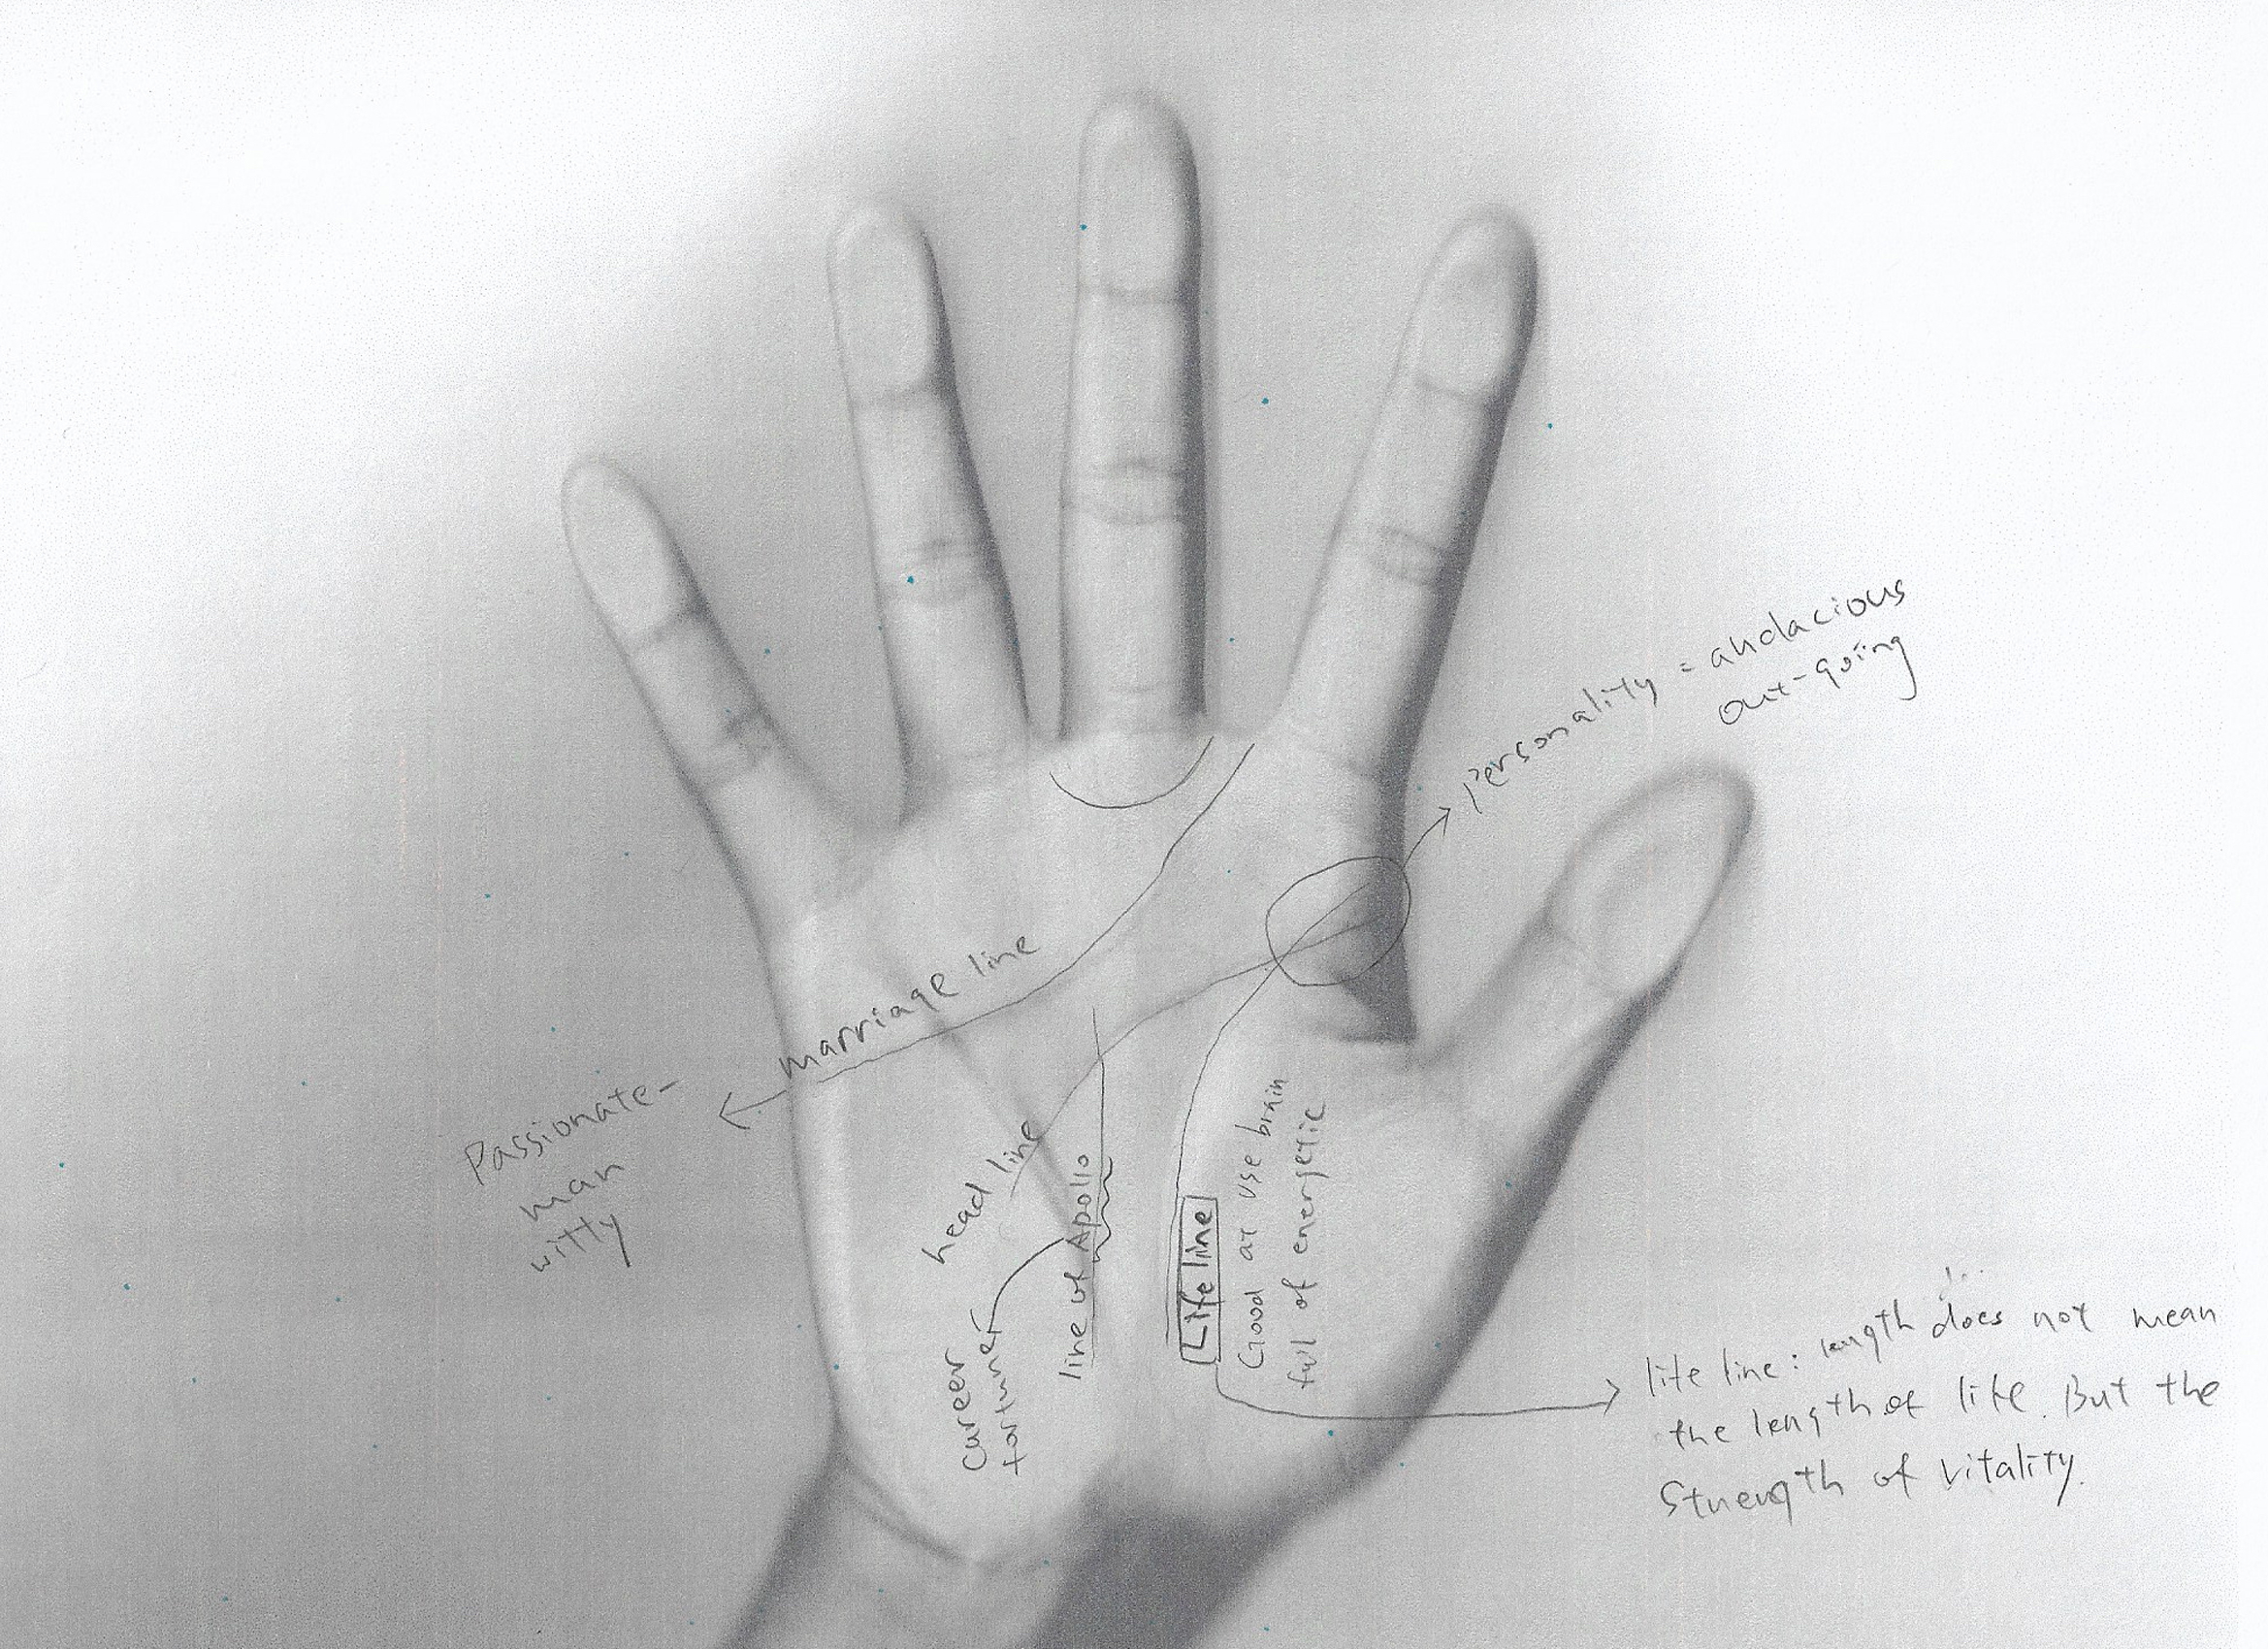 personality = audacious
out-going
marriage line
Passionate-
man
witty
head line
line of Apollo
Career
fortune
Life line
Good at use brain
full of energetic
life line: length does not mean
the length of life. But the
Strength of vitality.